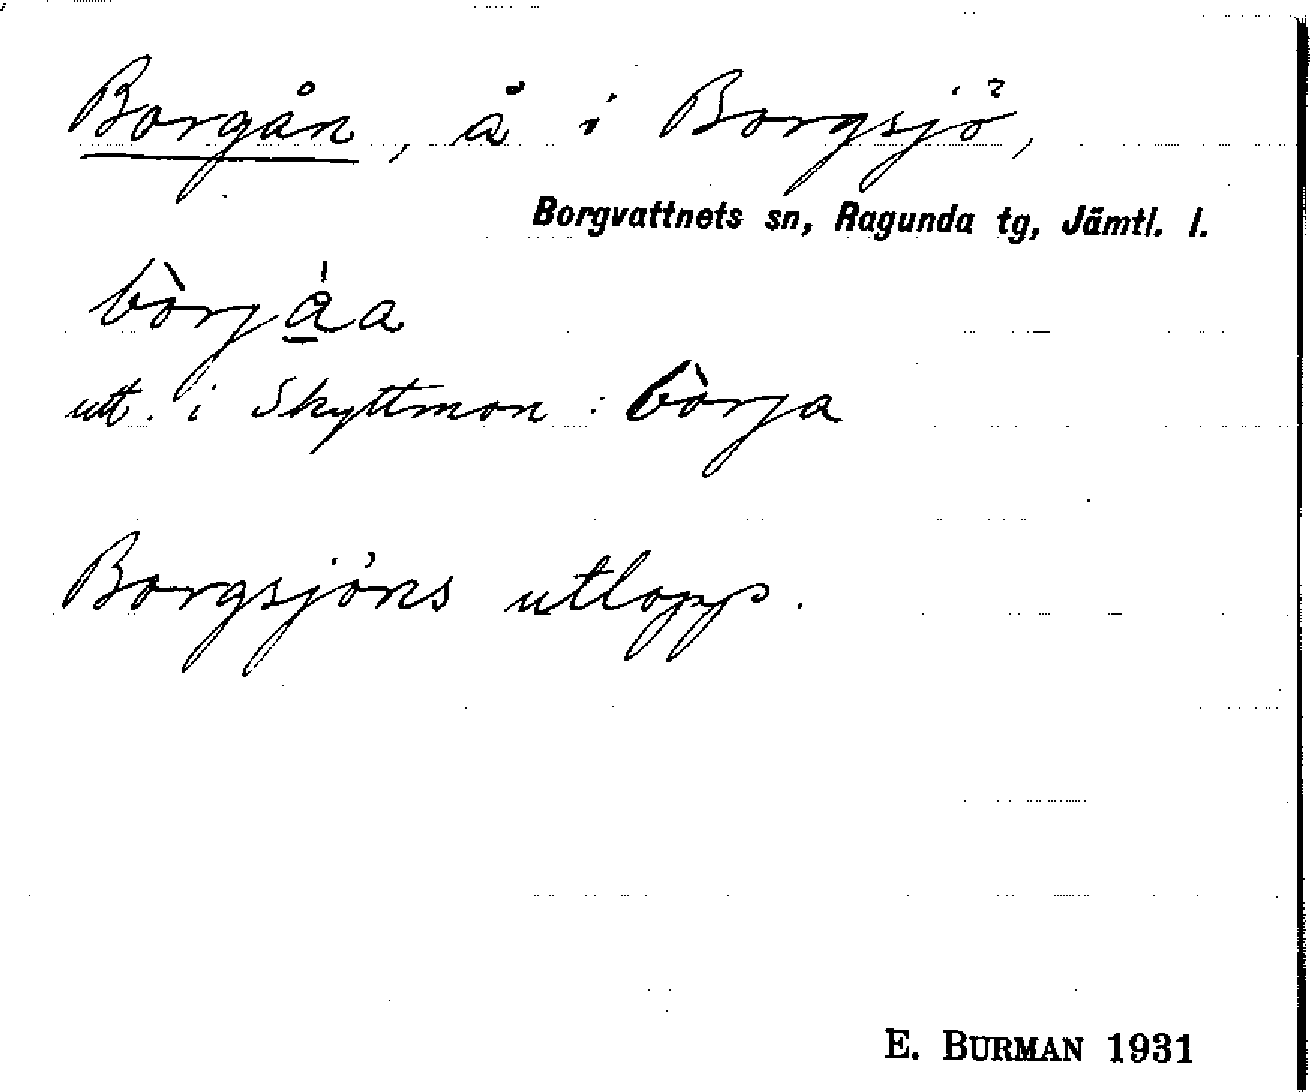 Borgån, å i Borgsjö,
Borgvattnets sn, Ragunda tg, Jämtl. l.
bòrgǻ̱a
utt. i Skyttmon: bòrja
Borgsjöns utlopp.
E. BURMAN 1931